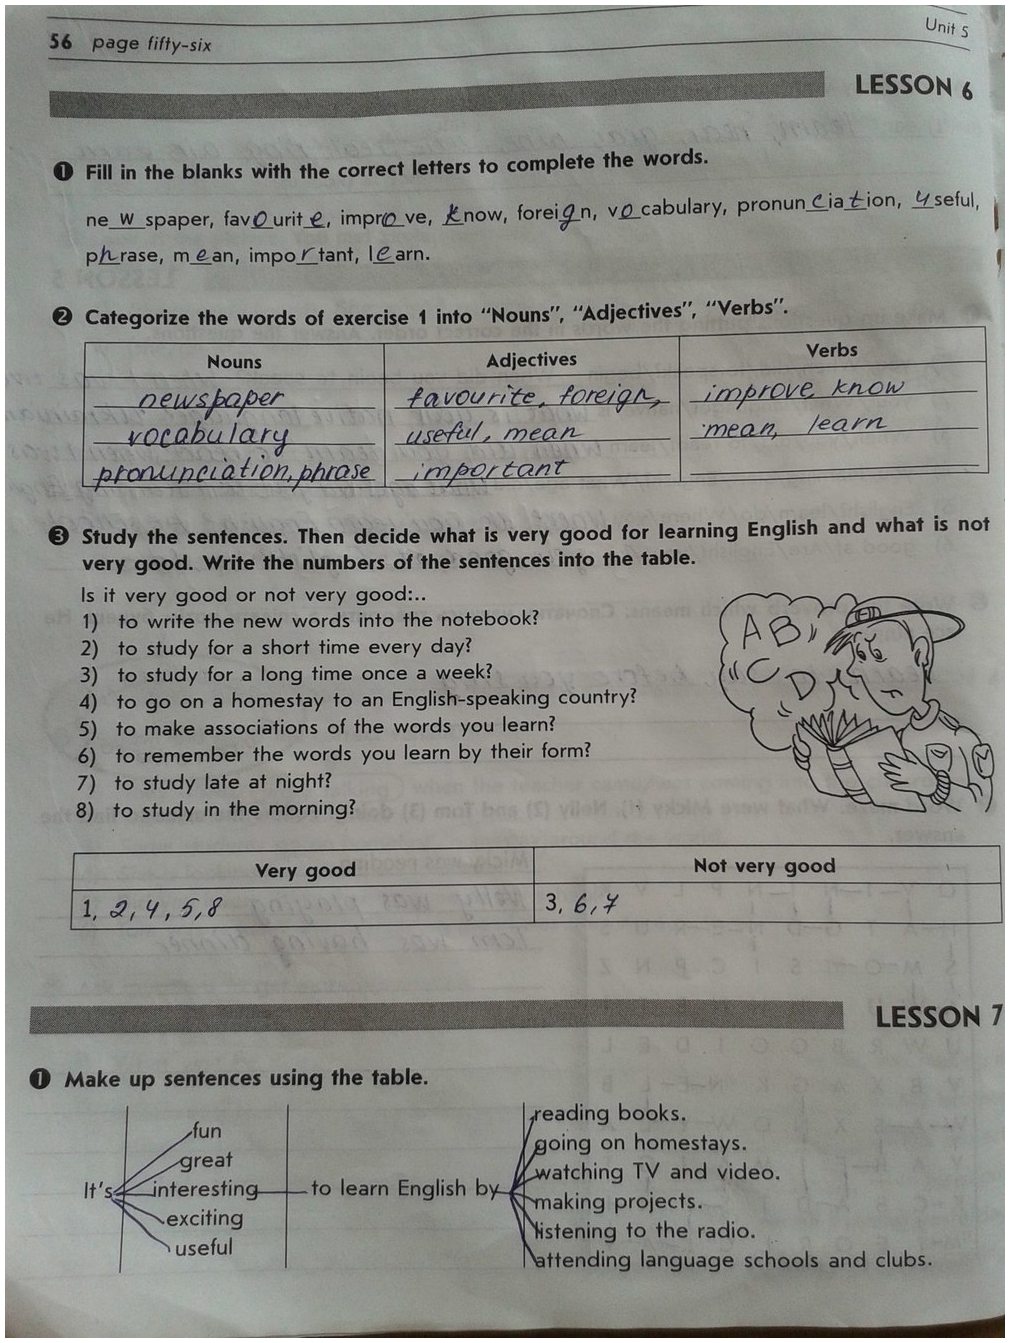 56 page fifty-six
Unit 5
LESSON 6
1 Fill in the blanks with the correct letters to complete the words.
ne w spaper, favourite, improve, know, foreign, vocabulary, pronunciation, useful,
phrase, mean, important, learn.
2 Categorize the words of exercise 1 into "Nouns", "Adjectives", "Verbs".
Nouns Adjectives Verbs
newspaper favourite, foreign, improve, know
vocabulary useful, mean mean, learn
pronunciation, phrase important
3 Study the sentences. Then decide what is very good for learning English and what is not
very good. Write the numbers of the sentences into the table.
Is it very good or not very good:..
1) to write the new words into the notebook?
2) to study for a short time every day?
3) to study for a long time once a week?
4) to go on a homestay to an English-speaking country?
5) to make associations of the words you learn?
6) to remember the words you learn by their form?
7) to study late at night?
8) to study in the morning?
A B
C D
Very good Not very good
1, 2, 4, 5, 8 3, 6, 7
LESSON 7
1 Make up sentences using the table.
reading books.
fun
going on homestays.
great
watching TV and video.
It's interesting to learn English by
making projects.
exciting
listening to the radio.
useful
attending language schools and clubs.